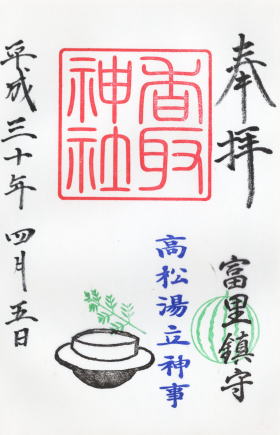 奉拝
香取
神社
富里鎮守
高松湯立神事
平成三十年 四月五日